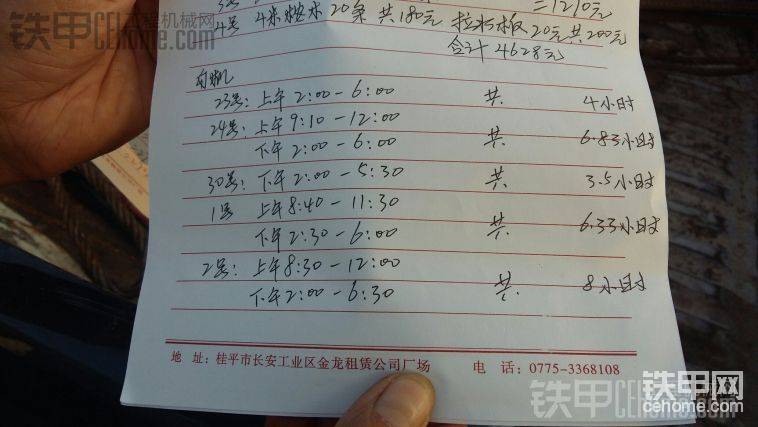 二1210元
4号 4米桉木 20条 共180元 拉材板20元共200元
合计4628元
勾机
23号: 上午2:00-6:00 共 4小时
24号: 上午9:10-12:00
下午2:00-6:00 共 6.83小时
30号: 下午2:00-5:30 共 3.5小时
1号 上午8:40-11:30
下午2:30-6:00 共 6.33小时
2号: 上午8:30-12:00
下午2:00-6:30 共 8小时
地 址: 桂平市长安工业区金龙租赁公司厂场 电 话: 0775-3368108
铁甲工程机械网
CEhome.com
铁甲网
cehome.com